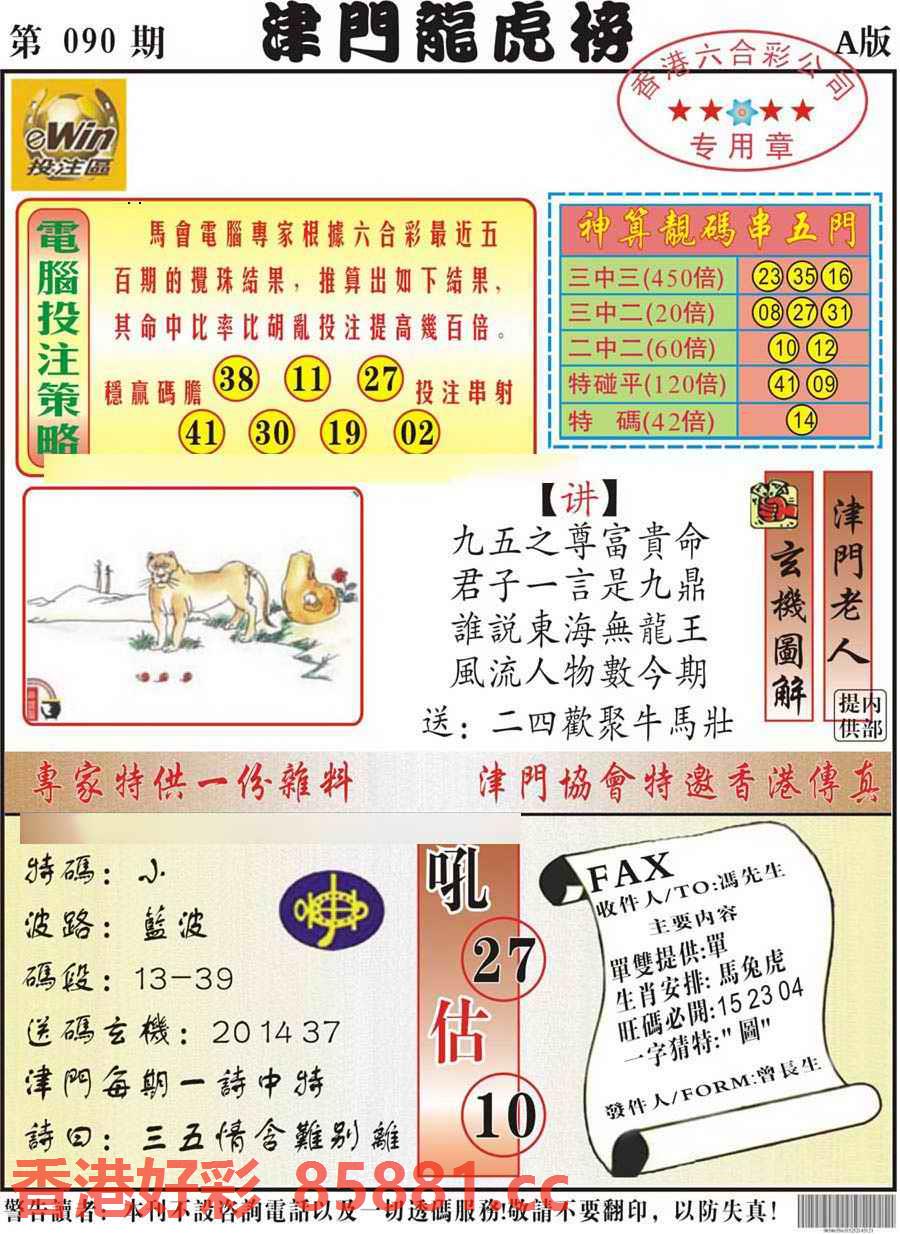 第 090 期
津門龍虎榜
A版
香港六合彩公司
专用章
eWin
投注區
電腦投注策略
馬會電腦專家根據六合彩最近五
百期的攪珠結果，推算出如下結果，
其命中比率比胡亂投注提高幾百倍。
穩贏碼膽 38 11 27 投注串射
41 30 19 02
神算靚碼串五門
三中三(450倍) 23 35 16
三中二(20倍) 08 27 31
二中二(60倍) 10 12
特碰平(120倍) 41 09
特 碼(42倍) 14
【讲】
九五之尊富貴命
君子一言是九鼎
誰説東海無龍王
風流人物數今期
送：二四歡聚牛馬壯
玄機圖解
津門老人
提供
内部
專家特供一份雜料
津門協會特邀香港傳真
特碼：小
波路：藍波
碼段：13-39
送碼玄機：201437
津門每期一詩中特
詩曰：三五情含難别離
吼
27
估
10
FAX
收件人/TO:馮先生
主要内容
單雙提供:單
生肖安排:馬兔虎
旺碼必開:15 23 04
一字猜特:"圖"
發件人/FORM:曾長生
香港好彩 85881.cc
警告讀者：本刊不設咨詢電話以及一切透碼服務!敬請不要翻印，以防失真!